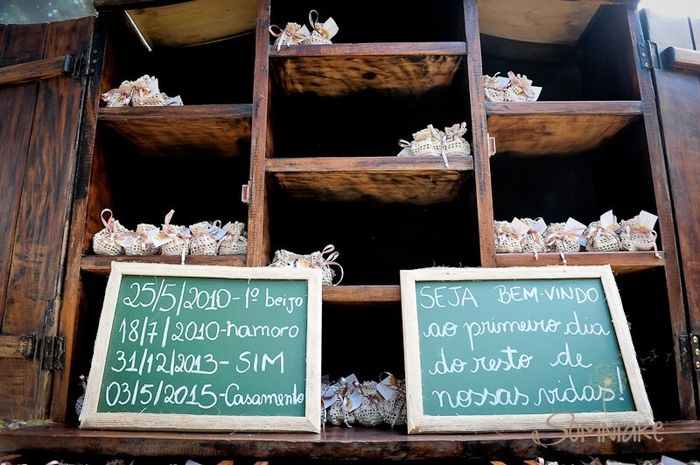 25/5/2010-1º beijo
18/7/2010-namoro
31/12/2013-SIM
03/5/2015-Casamento
SEJA BEM-VINDO
ao primeiro dia
do resto de
nossas vidas!